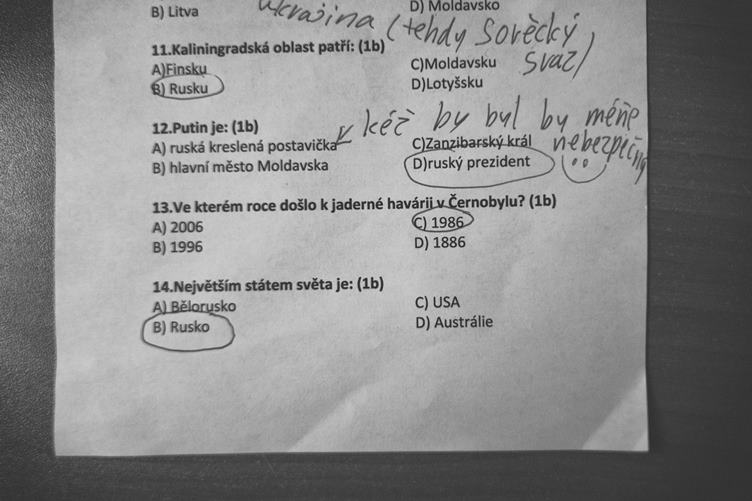 B) Litva
D) Moldavsko
Ukrajina (tehdy Sověcký
svaz)
11.Kaliningradská oblast patří: (1b)
A)Finsku
C)Moldavsku
B) Rusku
D)Lotyšsku
12.Putin je: (1b)
kéž by byl by méňe
nebezpěčný
A) ruská kreslená postavička
C)Zanzibarský král
B) hlavní město Moldavska
D)ruský prezident
13.Ve kterém roce došlo k jaderné havárii v Černobylu? (1b)
A) 2006
C) 1986
B) 1996
D) 1886
14.Největším státem světa je: (1b)
A) Bělorusko
C) USA
B) Rusko
D) Austrálie